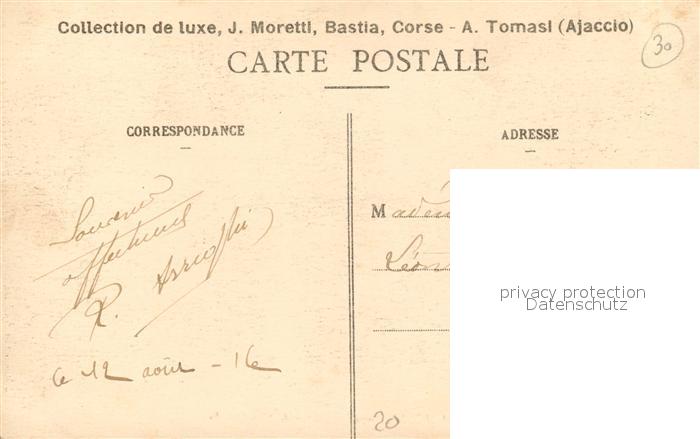 Collection de luxe, J. Moretti, Bastia, Corse - A. Tomasi (Ajaccio)
30
CARTE POSTALE
CORRESPONDANCE
ADRESSE
Souvenir
affectueux
Le 12 août - 16
M
Léon
privacy protection
Datenschutz
20